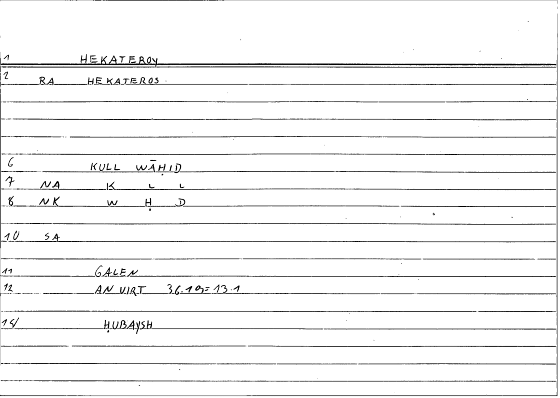 1 HEKATEROY
2 RA HEKATEROS
6 KULL WĀḤID
7 NA K L L
8 NK W Ḥ D
10 SA
11 GALEN
12 AN VIRT 36.19=13.1
14 ḤUBAYSH